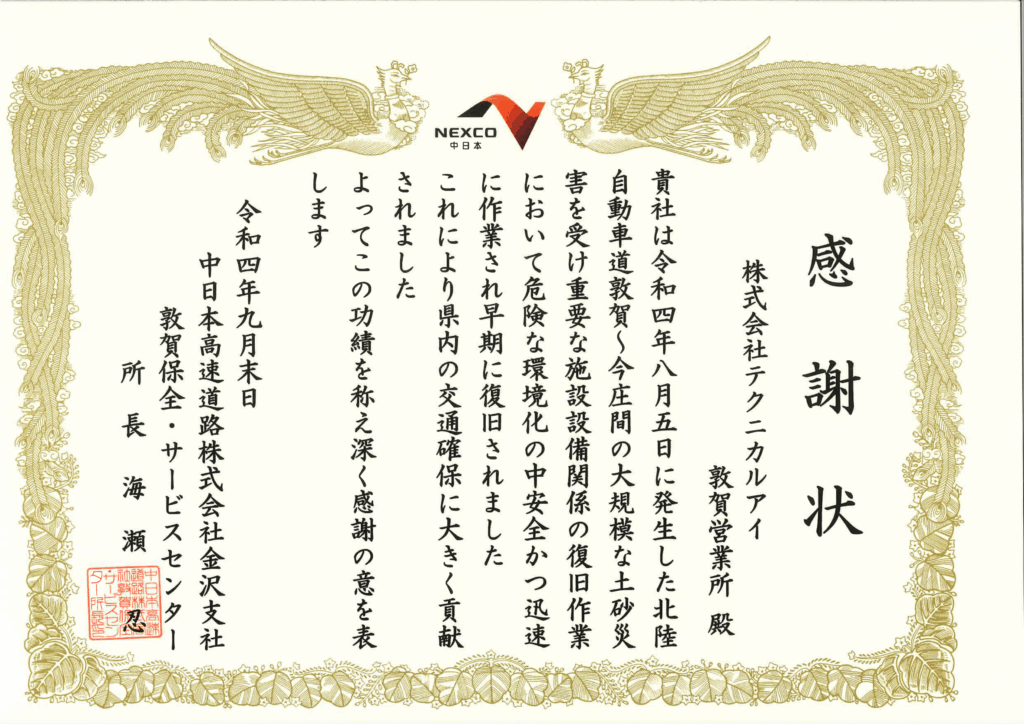 NEXCO
中日本
感謝状
株式会社テクニカルアイ
敦賀営業所 殿
貴社は令和四年八月五日に発生した北陸
自動車道敦賀〜今庄間の大規模な土砂災
害を受け重要な施設設備関係の復旧作業
において危険な環境化の中安全かつ迅速
に作業され早期に復旧されました
これにより県内の交通確保に大きく貢献
されました
よってこの功績を称え深く感謝の意を表
します
令和四年九月末日
中日本高速道路株式会社金沢支社
敦賀保全・サービスセンター
所長 海瀬 忍